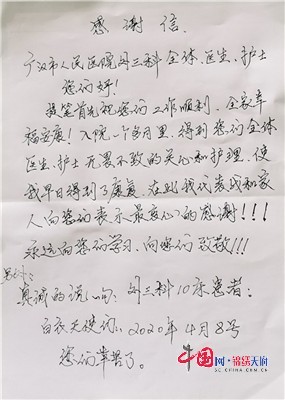 感谢信
广汉市人民医院外三科全体医生、护士
您们好!
提笔首先祝您们工作顺利,全家幸
福安康!入院一个多月里,得到您们全体
医生、护士无畏不致的关心和护理,使
我早日得到了康复,在此我代表我和家
人向您们表示最衷心的感谢!!!
永远向您们学习,向您们致敬!!!
另外:
真诚的说一句:外三科10床患者:
白衣天使们,2020年4月8号
您们辛苦了。
中国网·锦绣天府
SC.CHINA.COM.CN